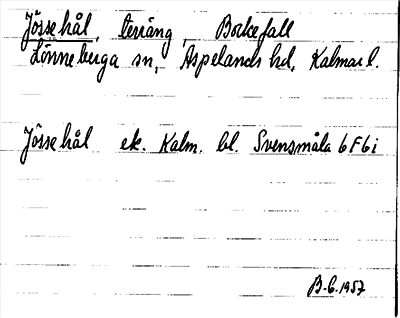 Jösse hål, terräng, Bockefall
Lönneberga sn, Aspelands hd, Kalmar l.
Jösse hål ek. Kalm. bl. Svensmåla 6F6i
B-C. 1957